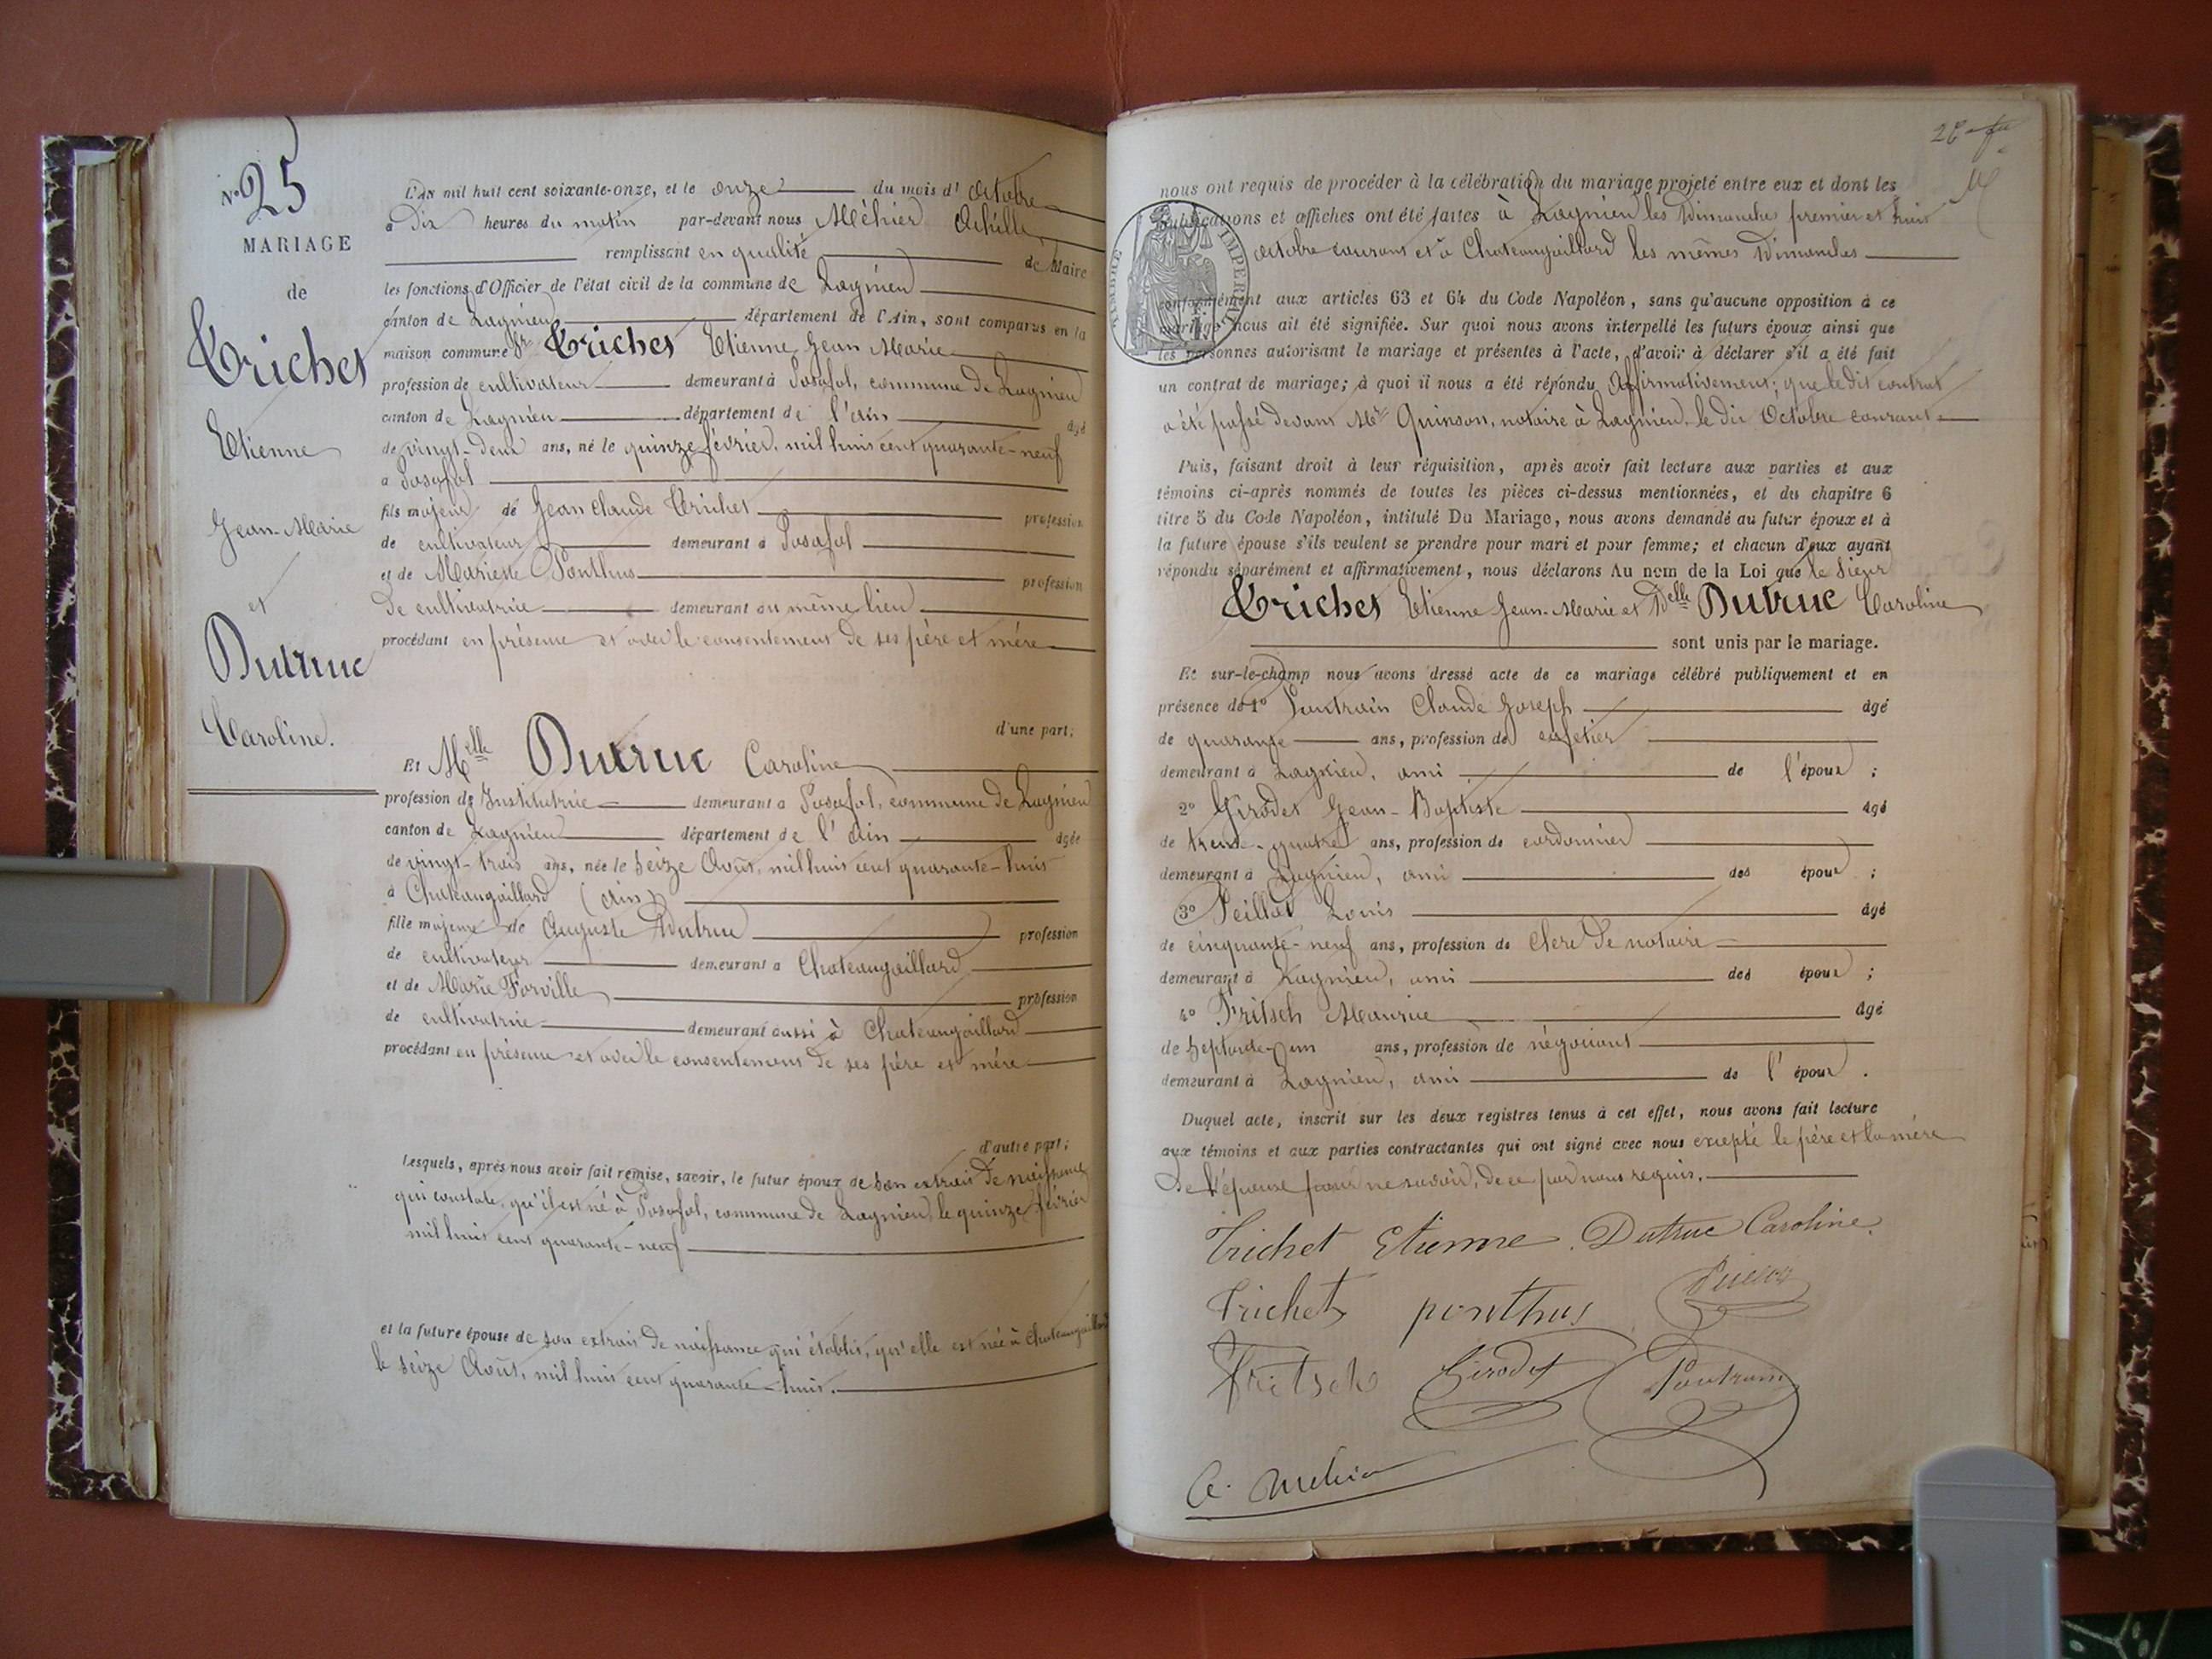 N° 25
MARIAGE
de
Trichet
Etienne
Jean-Marie
et
Dutruc
Caroline.
L'an mil huit cent soixante-onze, et le onze du mois d'octobre
à Dix heures du matin par-devant nous Méhier Achille
remplissant en qualité de Maire
les fonctions d'Officier de l'état civil de la commune de Lagnieu
canton de Lagnieu département de l'Ain, sont comparus en la
maison commune Sr Trichet Etienne Jean Marie
profession de cultivateur demeurant à Posafol, commune de Lagnieu
canton de Lagnieu département de l'Ain âgé
de vingt-deux ans, né le quinze février, mil huit cent quarante-neuf
à Posafol
fils majeur de Jean Claude Trichet profession
de cultivateur demeurant à Posafol
et de Mariette Ponthus profession
de cultivatrice demeurant au même lieu
procédant en présence et avec le consentement de ses père et mère
d'une part;
Et Melle Dutruc Caroline
profession de Institutrice demeurant à Posafol, commune de Lagnieu
canton de Lagnieu département de l'Ain âgée
de vingt-trois ans, née le seize Août, mil huit cent quarante-huit
à Chateaugaillard (Ain)
fille majeure de Auguste Dutruc profession
de cultivateur demeurant à Chateaugaillard
et de Marie Forville profession
de cultivatrice demeurant aussi à Chateaugaillard
procédant en présence et avec le consentement de ses père et mère
d'autre part;
Lesquels, après nous avoir fait remise, savoir, le futur époux de son extrait de naissance
qui constate, qu'il est né à Posafol, commune de Lagnieu, le quinze février
mil huit cent quarante-neuf
et la future épouse de son extrait de naissance qui établit, qu'elle est née à Chateaugaillard
le seize Août, mil huit cent quarante-huit.
nous ont requis de procéder à la célébration du mariage projeté entre eux et dont les
publications et affiches ont été faites à Lagnieu les Dimanches premier et huit
octobre courant et à Chateaugaillard les mêmes Dimanches
TIMBRE IMPERIAL
conformément aux articles 63 et 64 du Code Napoléon, sans qu'aucune opposition à ce
mariage nous ait été signifiée. Sur quoi nous avons interpellé les futurs époux ainsi que
les personnes autorisant le mariage et présentes à l'acte, d'avoir à déclarer s'il a été fait
un contrat de mariage; à quoi il nous a été répondu Affirmativement; que le dit contrat
a été passé devant Me Quinson, notaire à Lagnieu, le dix Octobre courant
Puis, faisant droit à leur réquisition, après avoir fait lecture aux parties et aux
témoins ci-après nommés de toutes les pièces ci-dessus mentionnées, et du chapitre 6
titre 5 du Code Napoléon, intitulé Du Mariage, nous avons demandé au futur époux et à
la future épouse s'ils veulent se prendre pour mari et pour femme; et chacun d'eux ayant
répondu séparément et affirmativement, nous déclarons Au nom de la Loi que le Sieur
Trichet Etienne Jean-Marie et Delle Dutruc Caroline
sont unis par le mariage.
Et sur-le-champ nous avons dressé acte de ce mariage célébré publiquement et en
présence de 1° Poutrain Claude Joseph âgé
de quarante ans, profession de cafetier
demeurant à Lagnieu, ami de l'époux ;
2° Girodet Jean-Baptiste âgé
de trente-quatre ans, profession de cordonnier
demeurant à Lagnieu, ami des époux ;
3° Peillod Louis âgé
de cinquante-neuf ans, profession de Clerc de notaire
demeurant à Lagnieu, ami des époux ;
4° Fritsch Maurice âgé
de septante-un ans, profession de négociant
demeurant à Lagnieu, ami de l'époux .
Duquel acte, inscrit sur les deux registres tenus à cet effet, nous avons fait lecture
aux témoins et aux parties contractantes qui ont signé avec nous excepté le père et la mère
de l'épouse pour ne savoir, de ce par nous requis.
Trichet Etienne Dutruc Caroline
Trichet ponthus
Fritsch Girodet Poutrain
A. Mehier